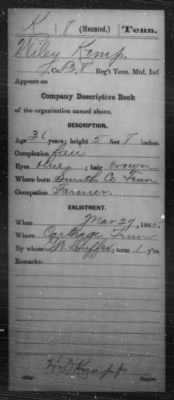 K | 8 (Mounted.) | Tenn.
Wiley Kemp
, Co. B, 8 Reg't Tenn. Mtd. Inf.
Appears on
Company Descriptive Book
of the organization named above.
DESCRIPTION.
Age 36 years; height 5 feet 8 inches.
Complexion Fair
Eyes Blue; hair Brown
Where born Smith Co Tenn
Occupation Farmer
ENLISTMENT.
When Mar 27, 186
Where Carthage Tenn
By whom ; term 1 y'rs.
Remarks: